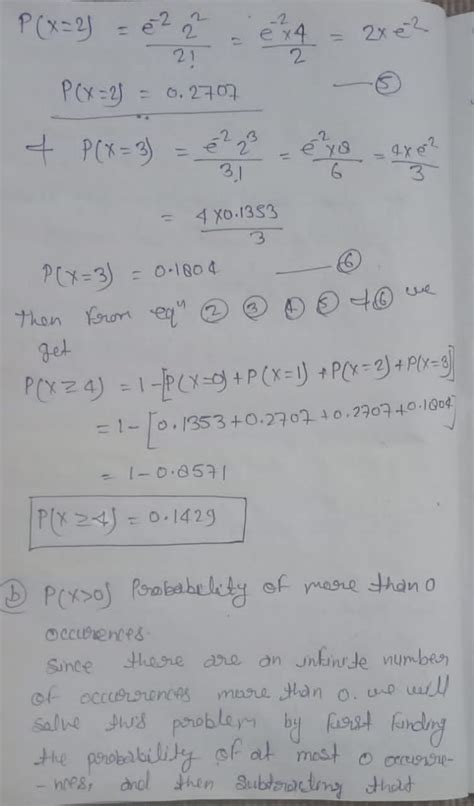 P(x=2) = e^-2 2^2 / 2! = e^-2 x 4 / 2 = 2x e^-2
P(x=2) = 0.2707 — ⑤
+ P(x=3) = e^-2 2^3 / 3! = e^-2 x 8 / 6 = 4x e^-2 / 3
= 4 x 0.1353 / 3
P(x=3) = 0.1804 — ⑥
then from eqn ② ③ ④ ⑤ + ⑥ we
get
P(x ≥ 4) = 1-[P(x=0) + P(x=1) + P(x=2) + P(x=3)]
= 1-[0.1353+0.2707+0.2707+0.1804]
= 1-0.8571
P(x ≥ 4) = 0.1429
ⓑ P(x>0) Probability of more than 0
occurences.
Since there are an infinite number
of occurrences more than 0. we will
solve this problem by first finding
the probability of at most 0 occurre-
-nces, and then subtracting that